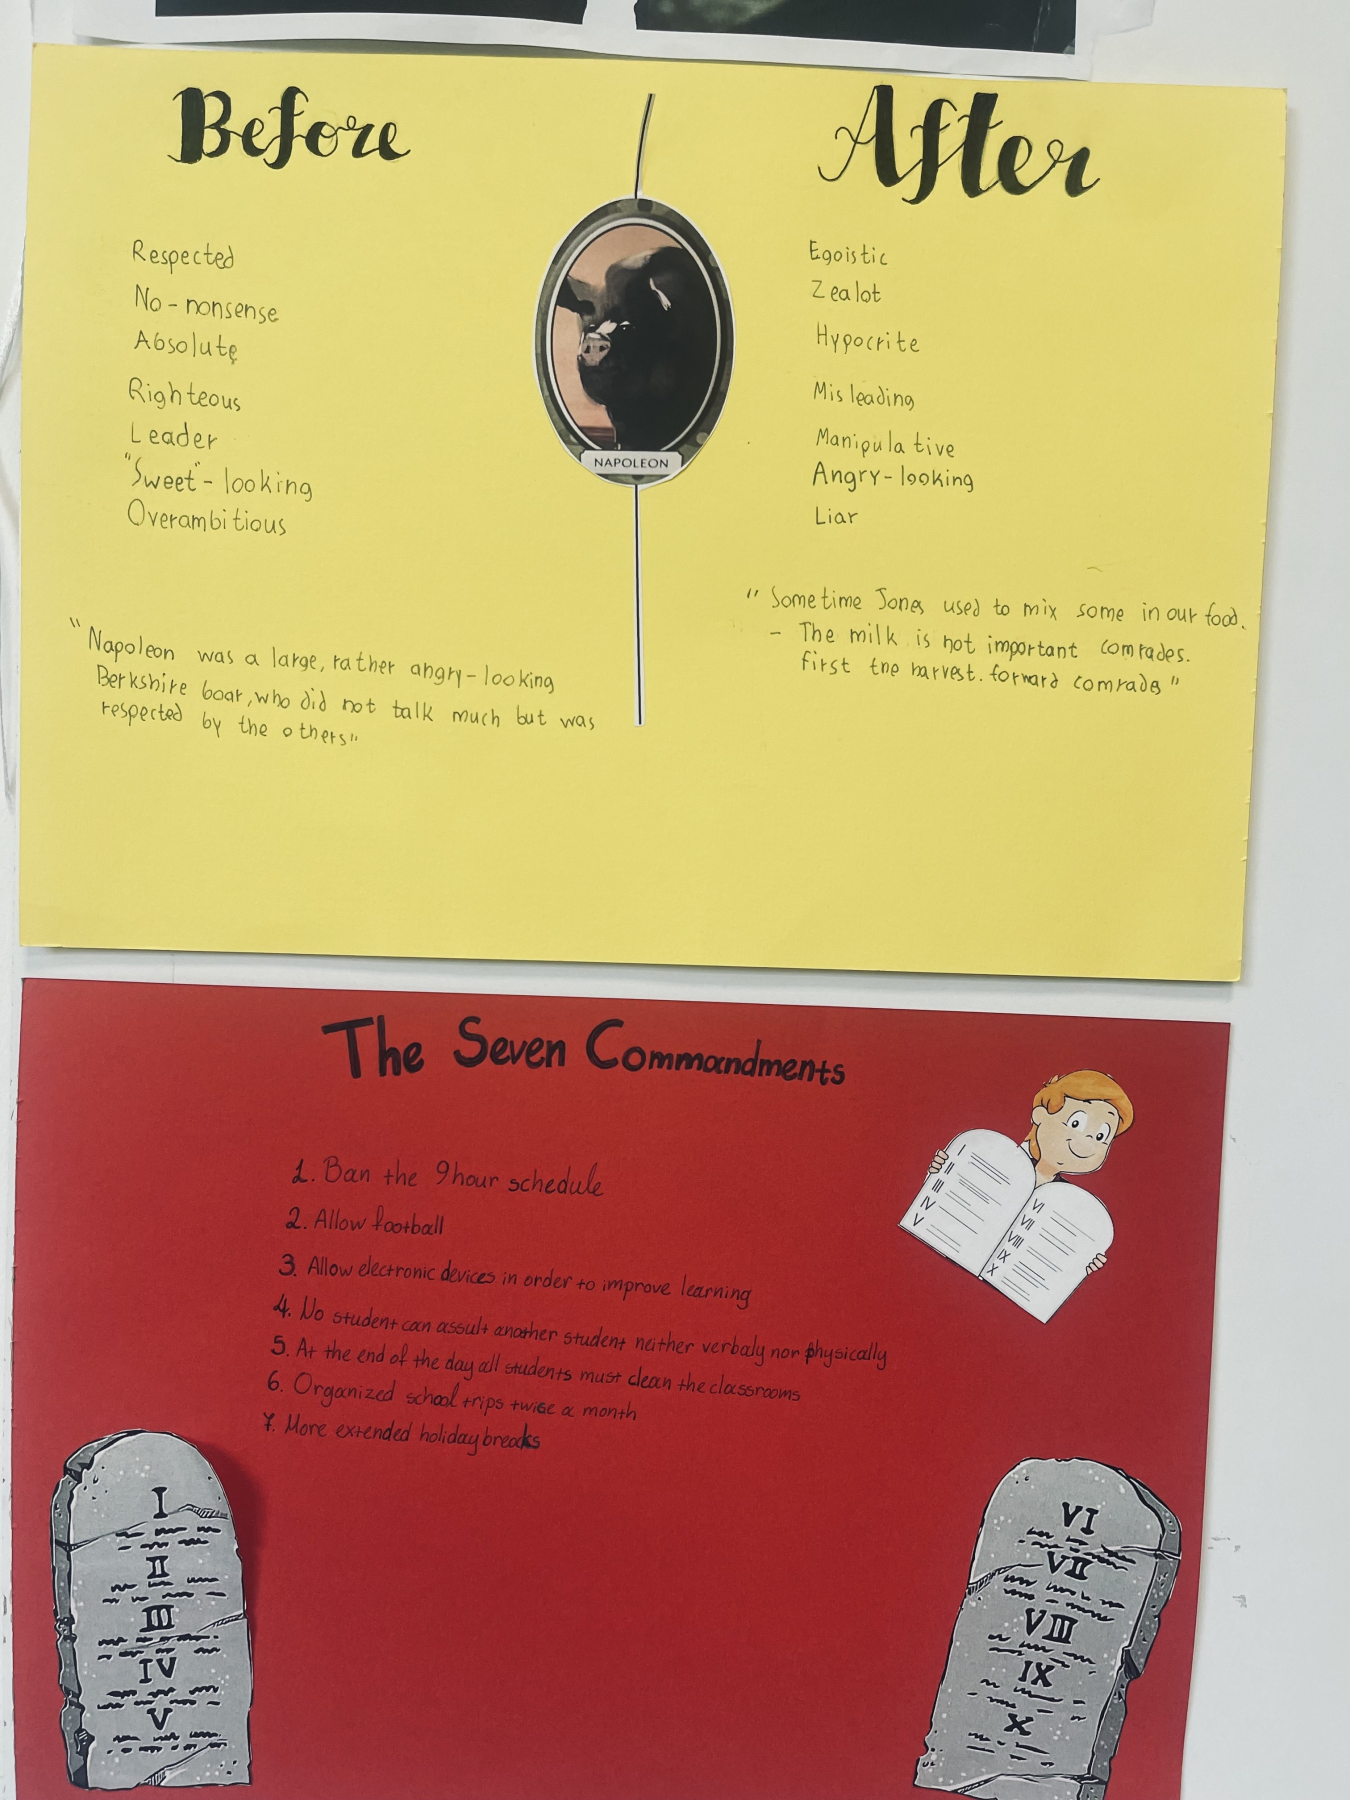 Before
Respected
No-nonsense
Absolute
Righteous
Leader
"Sweet"-looking
Overambitious
"Napoleon was a large, rather angry-looking
Berkshire boar, who did not talk much but was
respected by the others"
NAPOLEON
After
Egoistic
Zealot
Hypocrite
Misleading
Manipulative
Angry-looking
Liar
"Sometime Jones used to mix some in our food.
- The milk is not important comrades.
first the harvest. forward comrades"
The Seven Commandments
1. Ban the 9hour schedule
2. Allow football
3. Allow electronic devices in order to improve learning
4. No student can assult another student neither verbaly nor physically
5. At the end of the day all students must clean the classrooms
6. Organized school trips twise a month
7. More extended holiday breaks
I
II
III
IV
V
VI
VII
VIII
IX
X
I
II
III
IV
V
VI
VII
VIII
IX
X